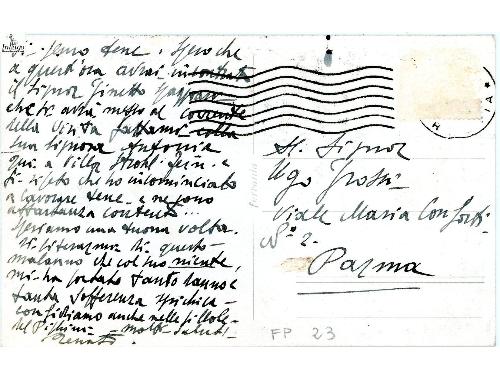 Ti penso bene. Spero che
a quest'ora avrai incontrato
il Signor Ginetto
che ti avrà messo al corrente
della visita fattami colla
sua signora Antonia
qui a Villa Strohl Fern. e
ti ripeto che ho incominciato
a lavorare bene - e ne sono
abbastanza contento...
Speriamo una buona volta.
di liberarmi di questo
malanno che col suo niente,
mi ha portato tanto danno e
tanta sofferenza psichica -
confidiamo anche nelle pillole -
del - molti saluti -
Renato
Al Signor
Ugo Grossi -
Viale Maria Conforti
N° 2 -
Parma
FP 23